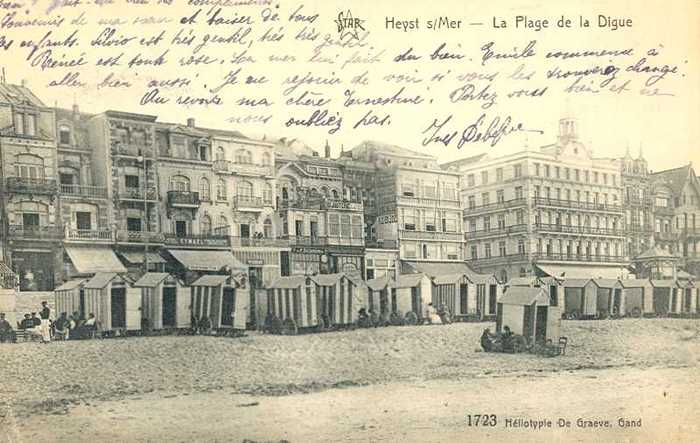 bien fait. bien au compliments.
Souvenirs de ma part et baiser de tous
les enfants. Silvio est très gentil, très très gentil.
Reinée est tout rose. La mer lui fait du bien. Emile commence à
aller bien aussi. Je me rejouir de voir si vous les trouverez changé.
Au revoir ma chère Ernestine. Portez vous bien et ne
nous oubliez pas.
STAR
Heyst s/Mer — La Plage de la Digue
1723 Héliotypie De Graeve, Gand